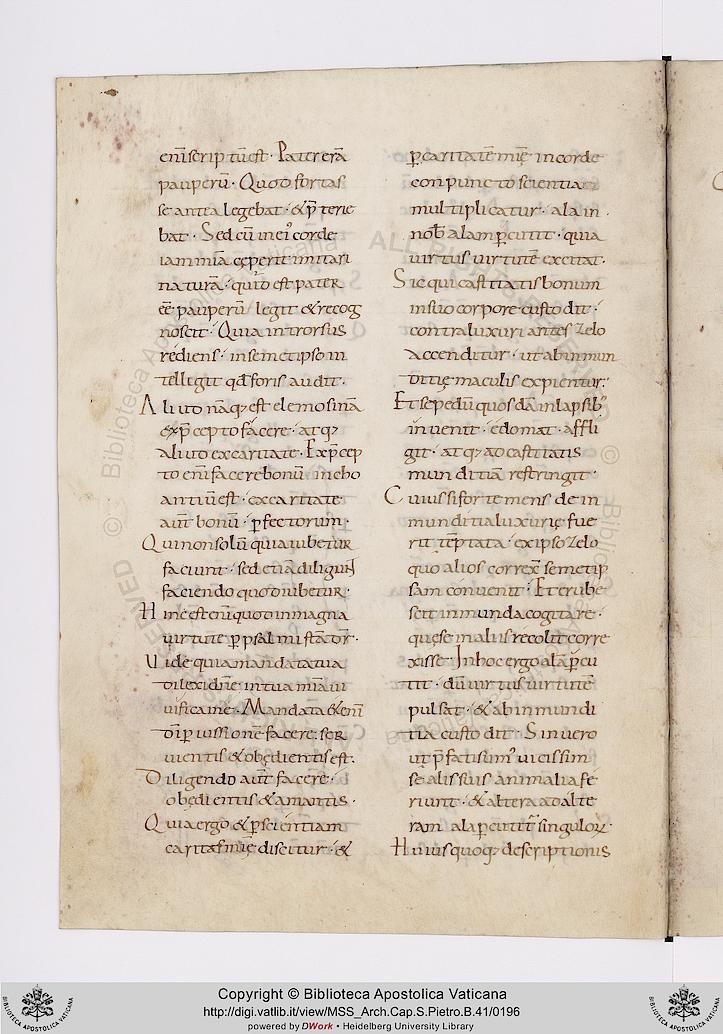 eni̅ scriptu̅ est · Pater era̅
pauperu̅ · Quod fortas
se antea legebat · & p̅terie
bat · Sed cu̅ in ei' corde
iam mi̅a experit imitari
natura̅ · quid est pater
ee̅ pauperu̅ legit & recog
noscit · Quia introrsus
rediens · in semetipso in
telligit qd̅ foris audit ·
Aliud na̅q; est elemosina̅
ex p̅cepto facere · atq;
aliud ex caritate · Ex p̅cep
to eni̅ facere bonu̅ incho
antiu̅ est · ex caritate
aut̅ bonu̅ · p̲fectorum ·
Qui non solu̅ quia iubetur
faciunt · sed etia̅ diligunt
faciendo quod iubetur ·
Hinc est eni̅ quod in magna
uirtute p̲ psalmista̅ dr̅ ·
Uide quia mandata tua
dilexi dn̅e in tua mi̅a ui
uifica me · Mandata & eni̅
di̅ p̲ iussione̅ facere ser
uientis & obędientis est ·
Diligendo aut̅ facere ·
obędientis & amantis ·
Quia ergo & p̲ scientiam
caritas mi̅ę discitur · &
p̲ caritate̅ mi̅ę in corde
conpuncto scientia
multiplicatur · ala in
nob̅ alam p̲cutit · quia
uirtus uirtute̅ excitat ·
Sic qui castitatis bonum
in suo corpore custodit ·
contra luxuriantes zelo
accenditur · ut ab inmun
ditię maculis expientur ·
Et sepe du̅ quosda̅ in lapsib'
inuenit · edomat · affli
git · atq; ad castitatis
munditia̅ restringit ·
Cuius si forte mens de in
munditia luxurię fue
rit te̅ptata · ex ipso zelo
quo alios correx̅ semetip
sam conuenit · Et erube
scit inmunda cogitare ·
quę se in aliis recolit corre
xisse · In hoc ergo ala̅ p̲cu
tit · du̅ uirtus uirtute̅
pulsat · & ab inmundi
tia custodit · Sin uero
ut p̅fati sum' uicissim
se alis suis animalia fe
riunt · & altera ad alte
ram ala p̲cutit singulor̅ ·
Huius quoq; descriptionis
Copyright © Biblioteca Apostolica Vaticana
http://digi.vatlib.it/view/MSS_Arch.Cap.S.Pietro.B.41/0196
powered by DWork • Heidelberg University Library